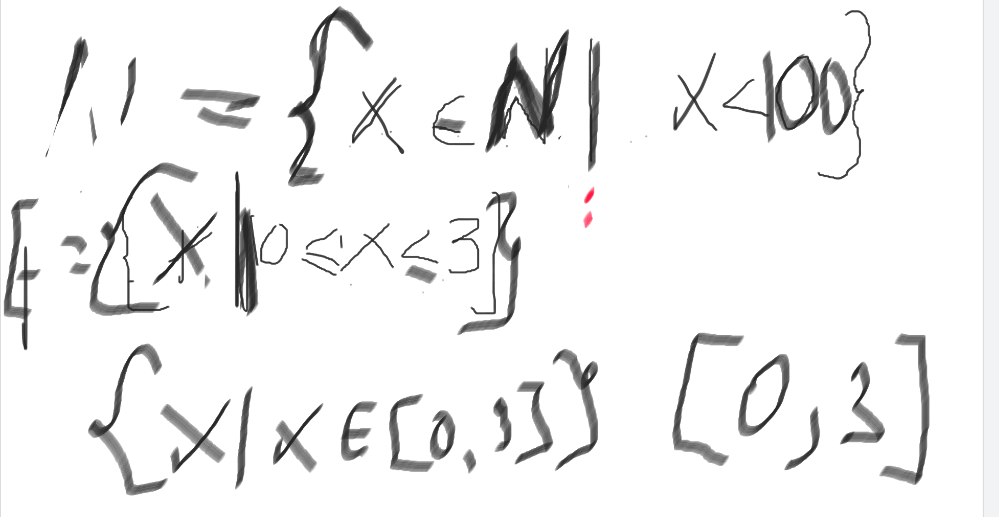 = {x ∈ N | x < 100}
= {x | 0 ≤ x ≤ 3}
{x | x ∈ [0, 3]} [0, 3]